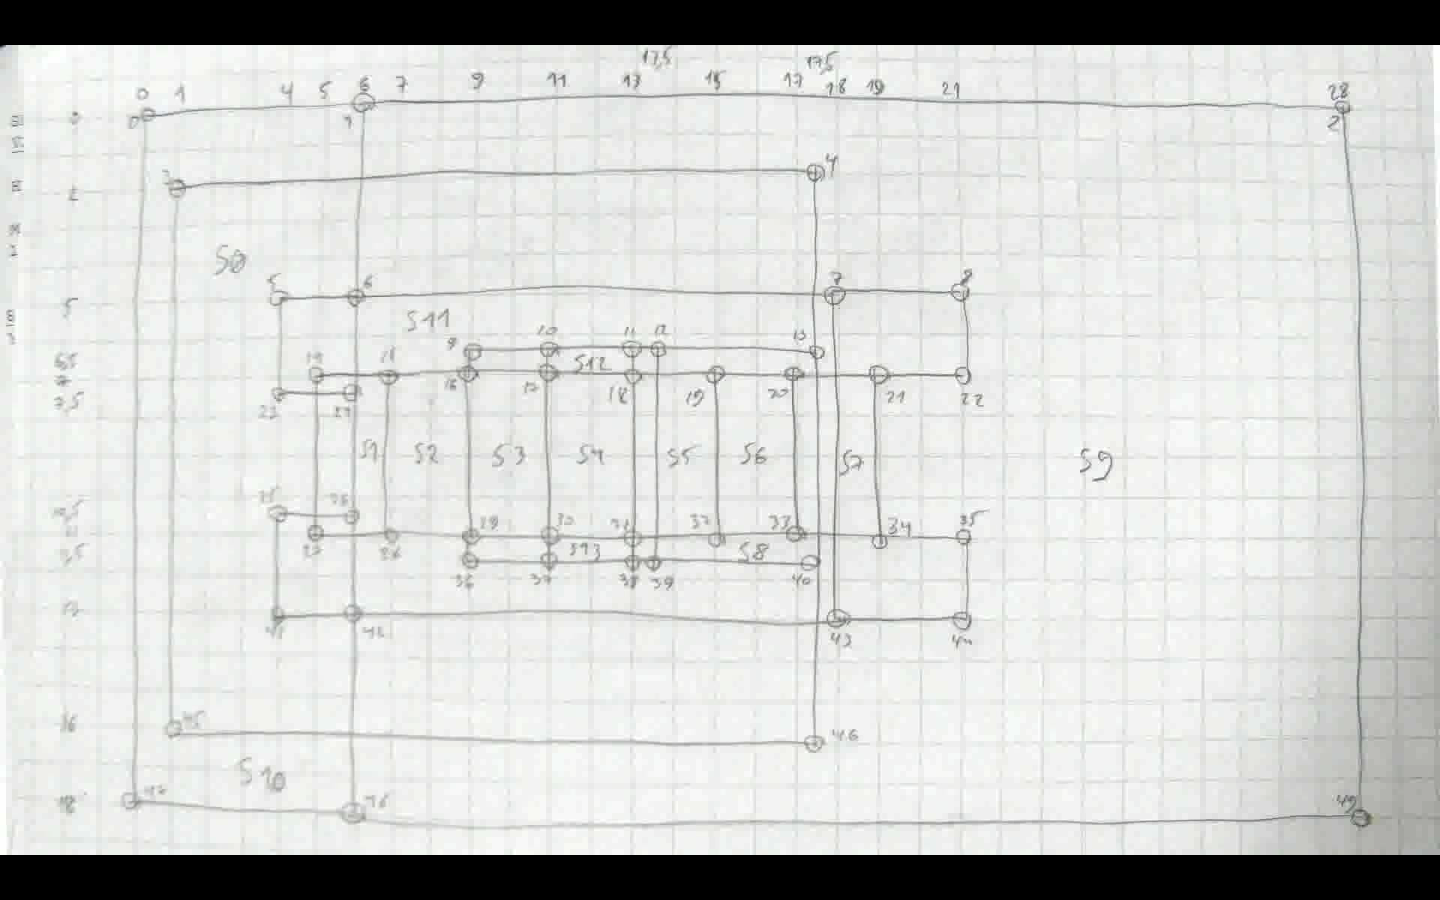 17,5 17,5
0 1 4 5 6 7 9 11 13 15 17 18 19 21 28
0 0 1 2
2 3 4
S0
5 5 6 7 8
S11
9 10 11 12 13
6,5 S12
7 14 15 16 17 18 19 20 21 22
7,5 23 24
S1 S2 S3 S4 S5 S6 S7 S9
25 28
27 26 29 30 31 32 33 34 35
S13 S8
36 37 38 39 40
13 41 42 43 44
16 45 46
S10
18 47 49